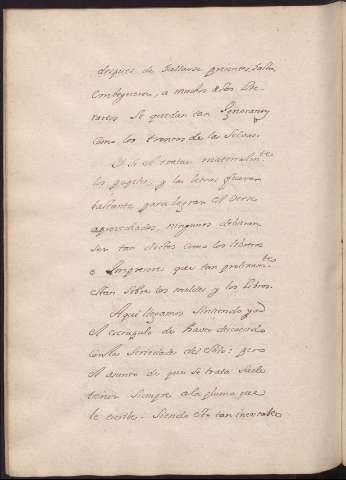 despues de hallarse presentes, salir
como leyeron, a muchos de los Lite-
ratos se quedan tan Ignorantes
como los troncos de las Selvas.
Y si el tratar materialm.te
los papeles, y las letras fueran
bastante para lograr el verse
aprovechados, ningunos debieran
ser tan doctos como los libreros
e Impresores que tan prolixam.te
estan sobre los moldes y los libros.
Aqui llegamos sintiendo yo
el escrupulo de haver discurrido
con la seriedad del estilo: pero
el asunto de que se trata suele
tenir siempre a la pluma que
le escribe. Siendo este tan inexcusable